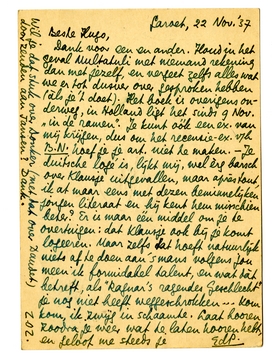 Parset, 22 Nov. '37
Beste Hugo,
Dank voor een en ander. Houd in het
geval Multatuli met niemand rekening
dan met jezelf, en vergeet zelfs alles wat
we er tot dusver over gesproken hebben
(als je 't doet). Het boek is overigens on-
derweg, in Holland ligt het sinds 9 Nov.
in de ramen. Je kunt óók een ex. van
mij krijgen, dus om het recensie-ex. v/h
B.N. hoef je je niet te maken. – Je
duitsche logé is, lijkt mij, wel erg barsch
over Klausje uitgevallen, maar après tout
ik at maar eens met dezen beminnelijken
jongen literaat en hij kent hem misschien
beter? Er is maar één middel om je te
overtuigen: dat Klausje ook bij je komt
logeeren. Maar zelfs dat hoeft natuurlijk
niets af te doen aan 's mans volgens jou
meen ik formidabel talent, en wat dat
betreft, als "Ragnar's razende Geschlecht"
je nog niet heeft weggeschrokken... kom
kom, ik zwijg in schaamte. Laat hooren
zoodra je weer wat te laken hooren hebt
en geloof me steeds je
EdP.
Wil je dat stuk over Donker (met dat over Dausset)
doorzenden aan Jansen? Dank.
Z.O.Z.